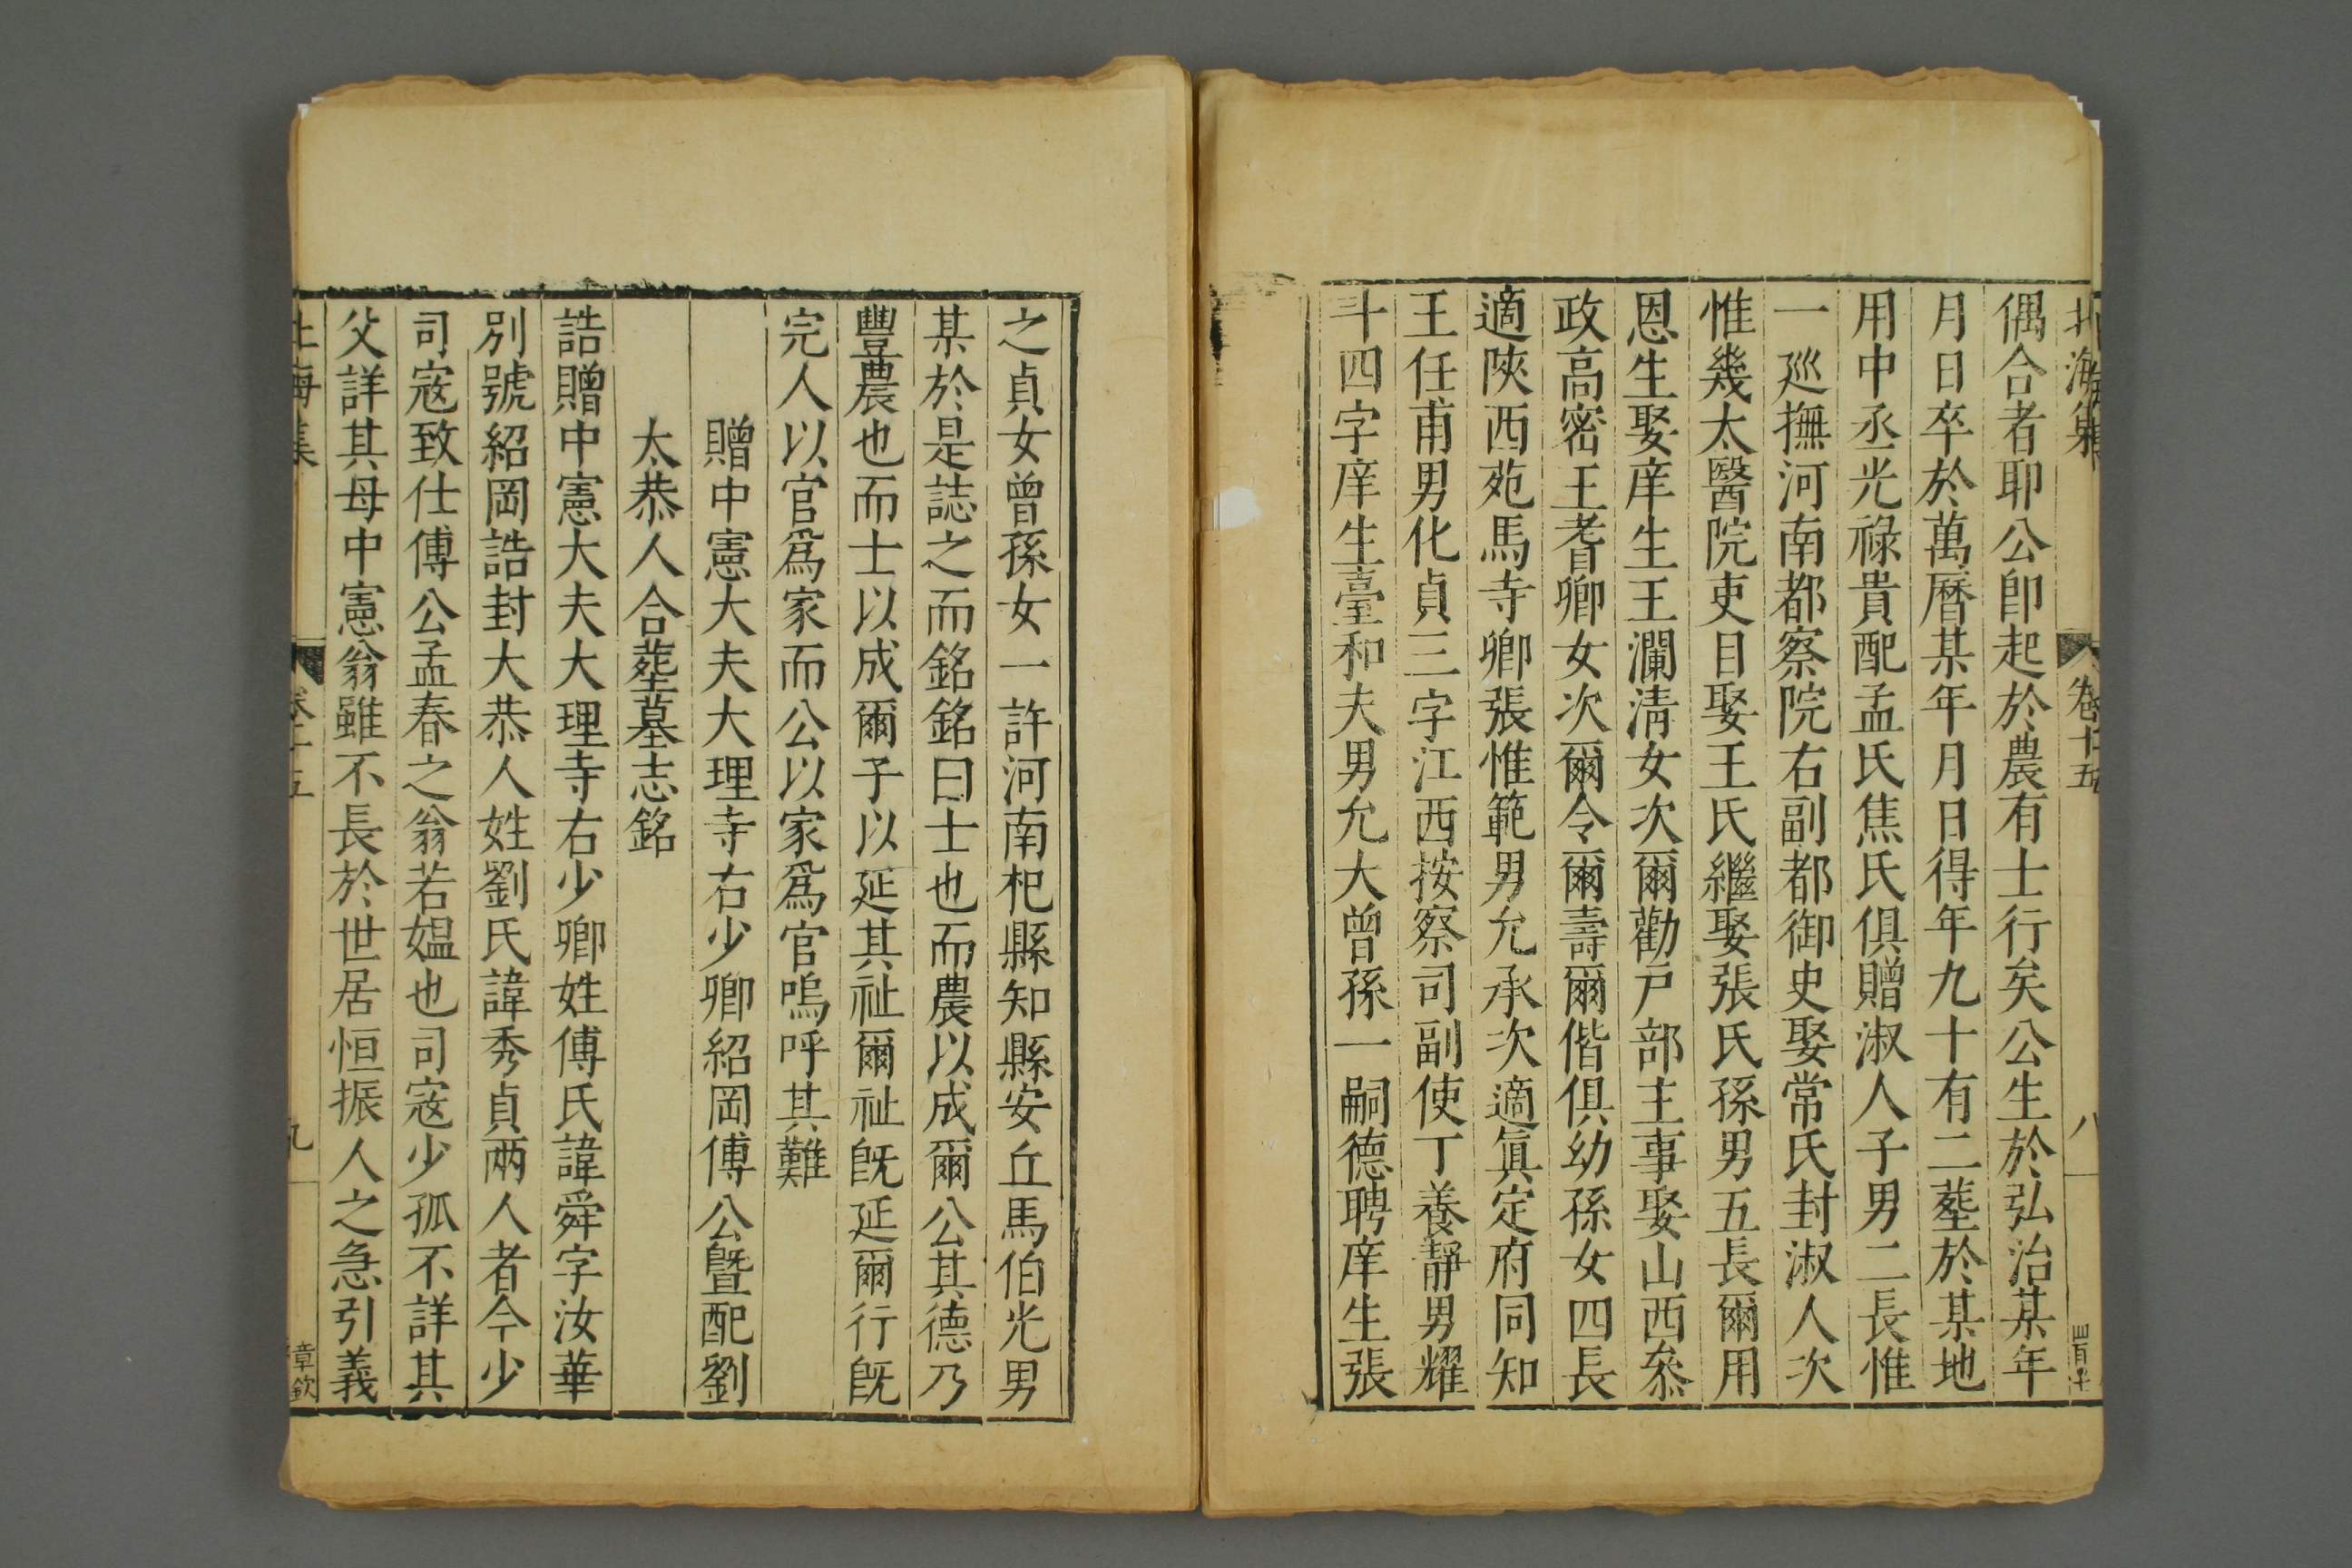 北海集 卷十五 八
偶合者耶公卽起於農有士行矣公生於弘治某年
月日卒於萬曆某年月日得年九十有二塟於某地
用中丞光祿貴配孟氏焦氏俱贈淑人子男二長惟
一廵撫河南都察院右副都御史娶常氏封淑人次
惟幾太醫院吏目娶王氏繼娶張氏孫男五長爾用
恩生娶庠生王瀾淸女次爾勸戶部主事娶山西叅
政高密王耆卿女次爾令爾壽爾偕俱幼孫女四長
適陝西苑馬寺卿張惟範男允承次適眞定府同知
王任甫男化貞三字江西按察司副使丁養靜男耀
斗四字庠生臺和夫男允大曾孫一嗣德聘庠生張
之貞女曾孫女一許河南杞縣知縣安丘馬伯光男
某於是誌之而銘銘曰士也而農以成爾公其德乃
豐農也而士以成爾子以延其祉爾祉旣延爾行旣
完人以官爲家而公以家爲官嗚呼其難
贈中憲大夫大理寺右少卿紹岡傅公曁配劉
太恭人合塟墓志銘
誥贈中憲大夫大理寺右少卿姓傅氏諱舜字汝華
別號紹岡誥封大恭人姓劉氏諱秀貞兩人者今少
司寇致仕傅公孟春之翁若媼也司寇少孤不詳其
父詳其母中憲翁雖不長於世居恒振人之急引義
北海集 卷十五 九
章欽